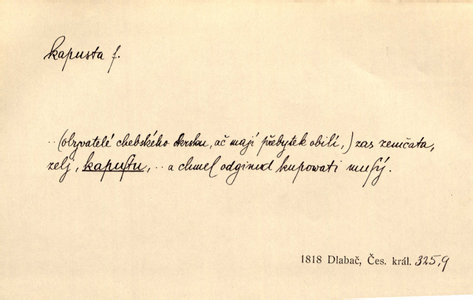 kapusta f.
.. (obyvatelé chebského okresu, ač mají přebytek obilí,) zas zemčata,
zelj, kapustu, .. a chmel odginud kupowati musý.
1818 Dlabač, Čes. král. 325,9